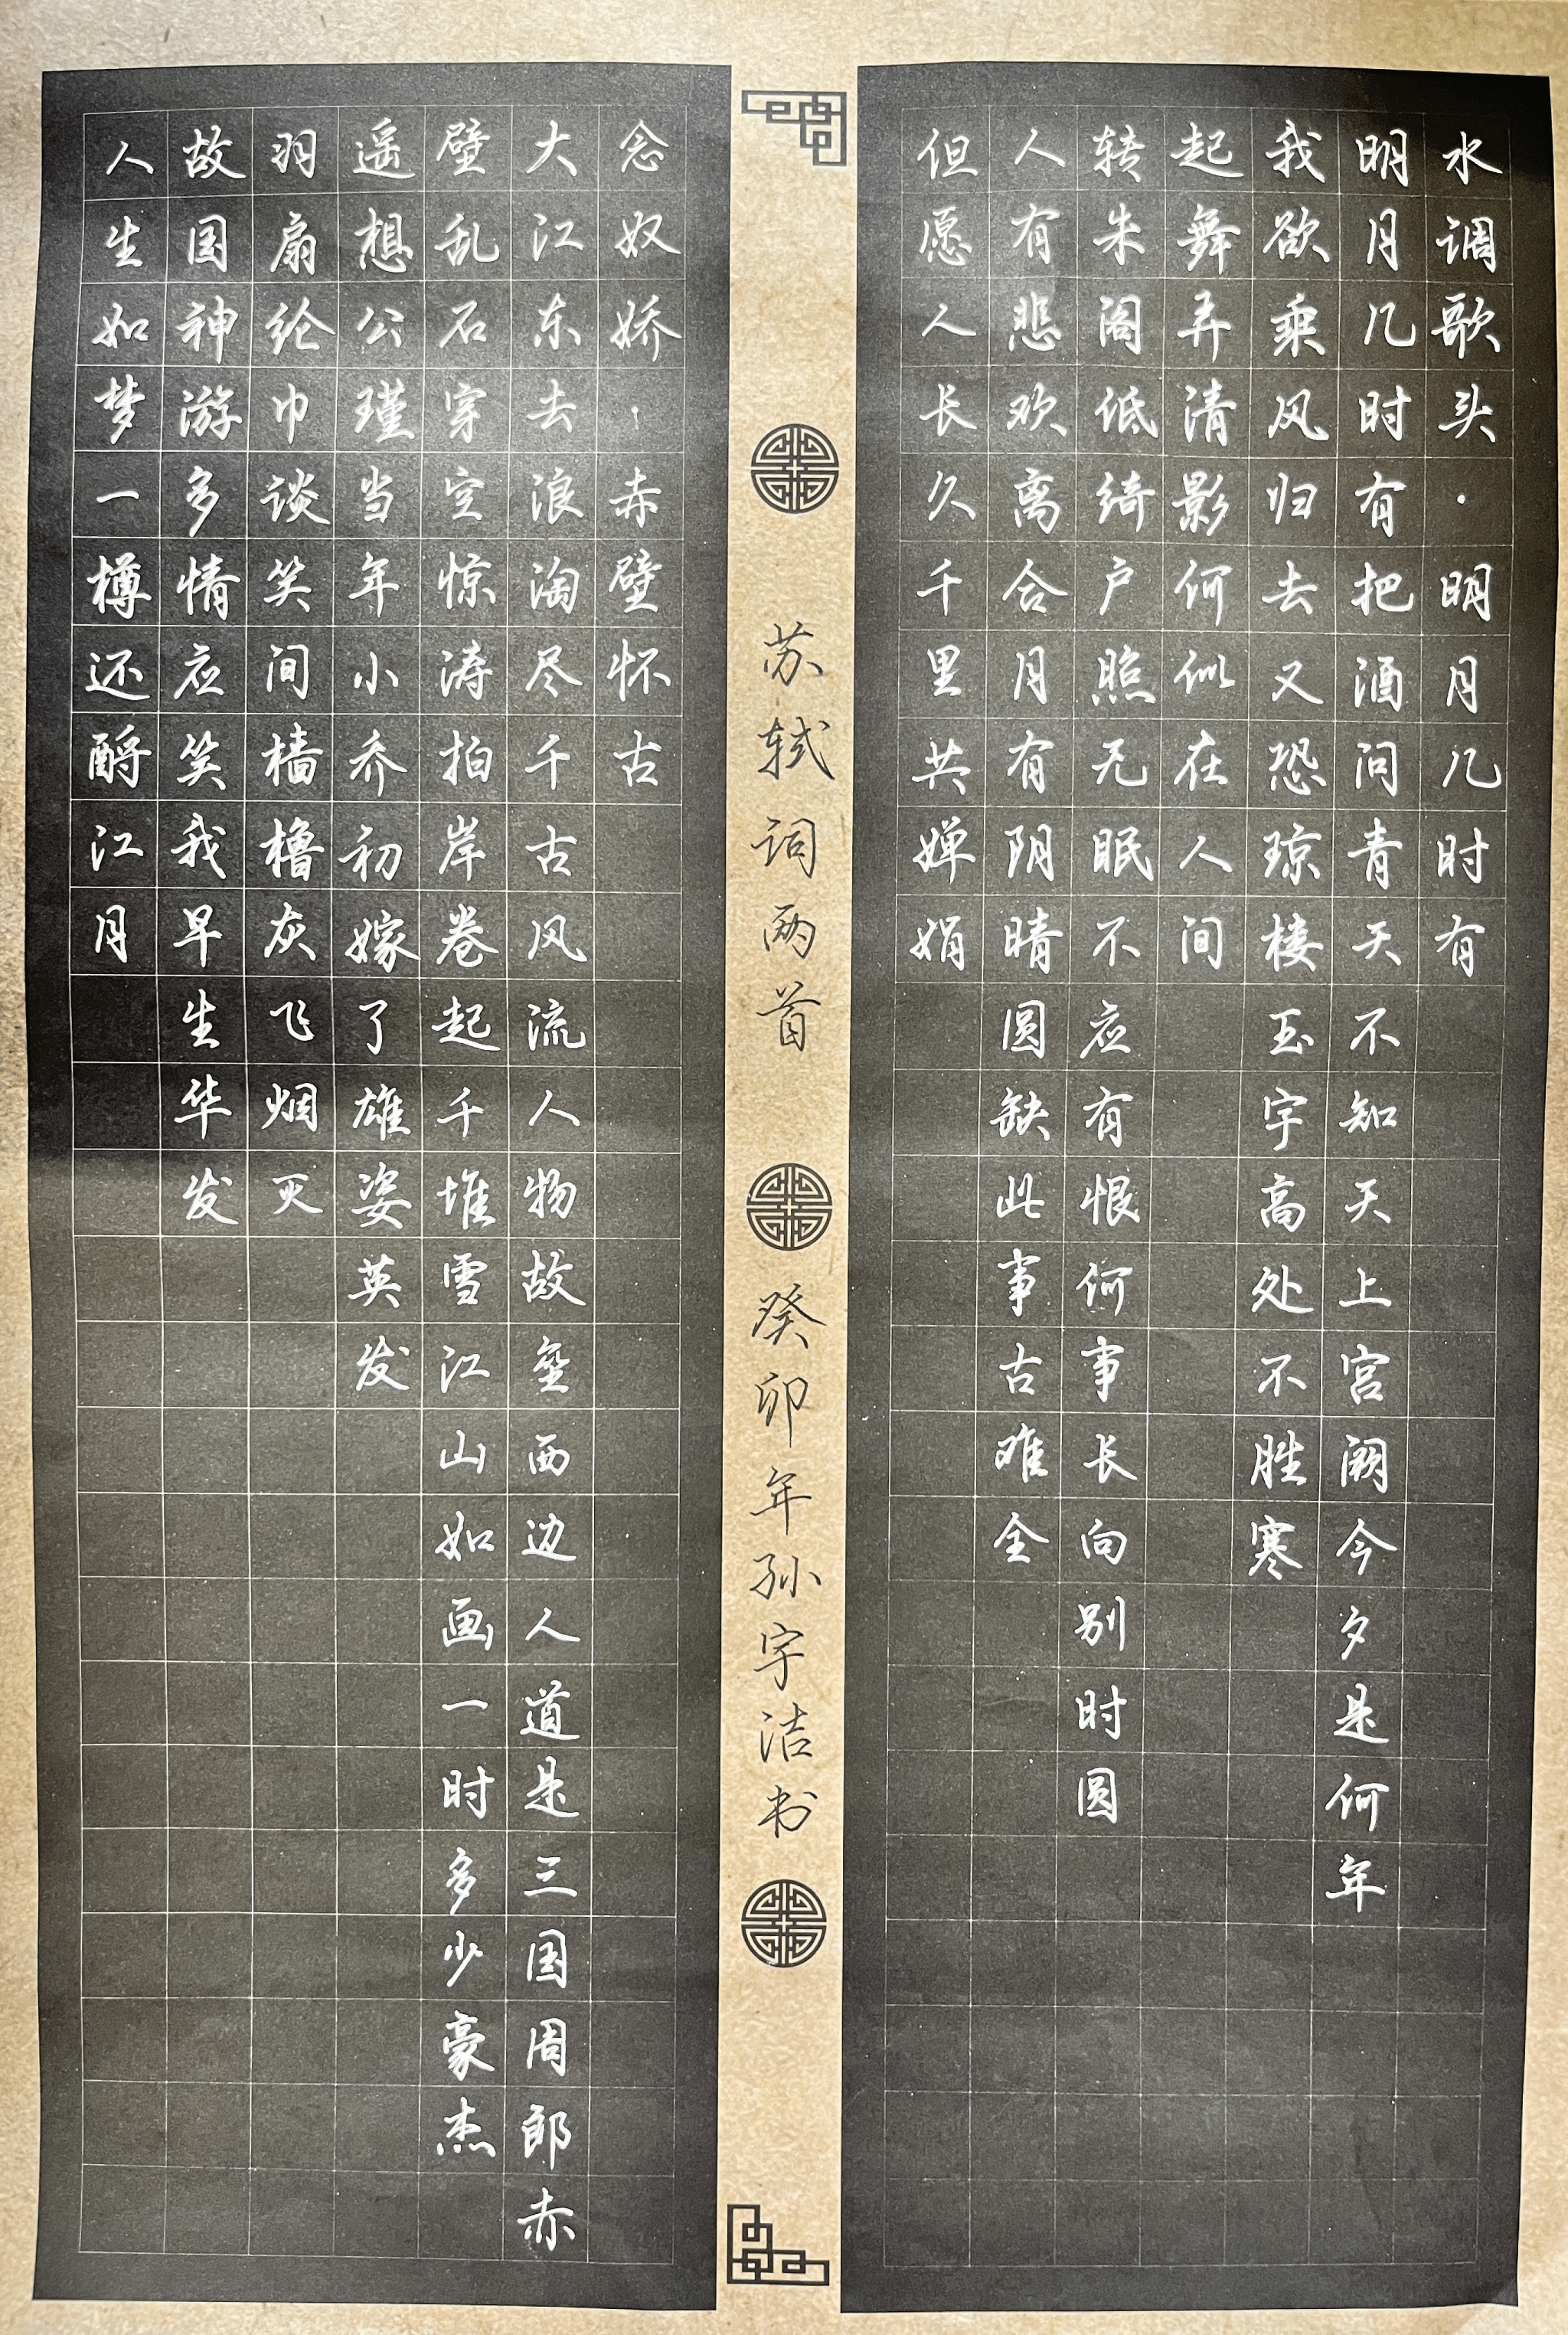 水调歌头·明月几时有
明月几时有把酒问青天不知天上宫阙今夕是何年
我欲乘风归去又恐琼楼玉宇高处不胜寒
起舞弄清影何似在人间
转朱阁低绮户照无眠不应有恨何事长向别时圆
人有悲欢离合月有阴晴圆缺此事古难全
但愿人长久千里共婵娟
苏轼词两首
癸卯年孙宇洁书
念奴娇·赤壁怀古
大江东去浪淘尽千古风流人物故垒西边人道是三国周郎赤
壁乱石穿空惊涛拍岸卷起千堆雪江山如画一时多少豪杰
遥想公瑾当年小乔初嫁了雄姿英发
羽扇纶巾谈笑间樯橹灰飞烟灭
故国神游多情应笑我早生华发
人生如梦一樽还酹江月